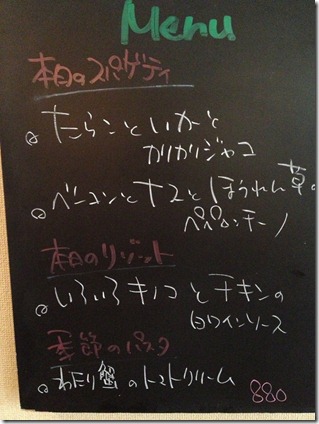 Menu
本日のスパゲティ
たらこといかと
カリカリジャコ
ベーコンとナスとほうれん草の
ペペロンチーノ
本日のリゾット
いろいろキノコとチキンの
白ワインソース
季節のパスタ
わたり蟹のトマトクリーム
880